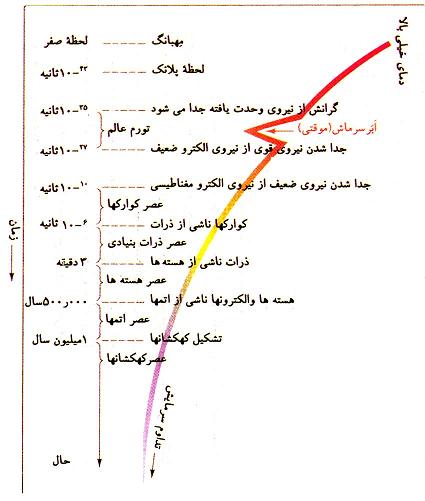 دمای خیلی بالا
مِهبانگ ------ لحظهٔ صفر
لحظهٔ پلانک ------ ۱۰-۴۳ ثانیه
گرانش از نیروی وحدت یافته جدا می شود ------ ۱۰-۳۵ ثانیه
اَبَر سرمایش (موقتی)
تورم عالم
جدا شدن نیروی قوی از نیروی الکترو ضعیف ------ ۱۰-۲۷ ثانیه
جدا شدن نیروی ضعیف از نیروی الکترو مغناطیسی ------ ۱۰-۱۰ ثانیه
عصر کوارکها
کوارکها ناشی از ذرات ------ ۱۰-۶ ثانیه
عصر ذرات بنیادی
ذرات ناشی از هسته ها ------ ۳ دقیقه
عصر هسته ها
هسته ها والکترونها ناشی از اتمها ------ ۵۰۰٫۰۰۰ سال
عصر اتمها
تشکیل کهکشانها ------ ۱میلیون سال
عصرکهکشانها
تداوم سرمایش
حال
زمان